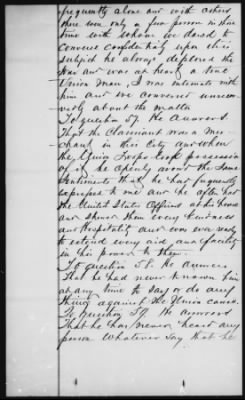 frequently alone and with others
there were only a few person in those
time with whom we dared to
converse confidentially upon this
subject he always deplored the
war and was at heart a true
Union man, I was intimate with
him and we conversed
about the matter
To question 57. He Answers
That the Claimant was a Mer-
chant in this City and when
the Union Troops took possession
of it he openly avowed the same
sentiments that he had frequently
expressed to me and he often had
the United States Officers at his house
and shown them every kindness
and Hospitality and was ever ready
to extend every aid and facility
in his power to them.
To question 58. He answers
That he had never known him
at any time to say or do any
thing against the Union cause.
To question 59. He answered
That he has never heard any
person whatever say that he